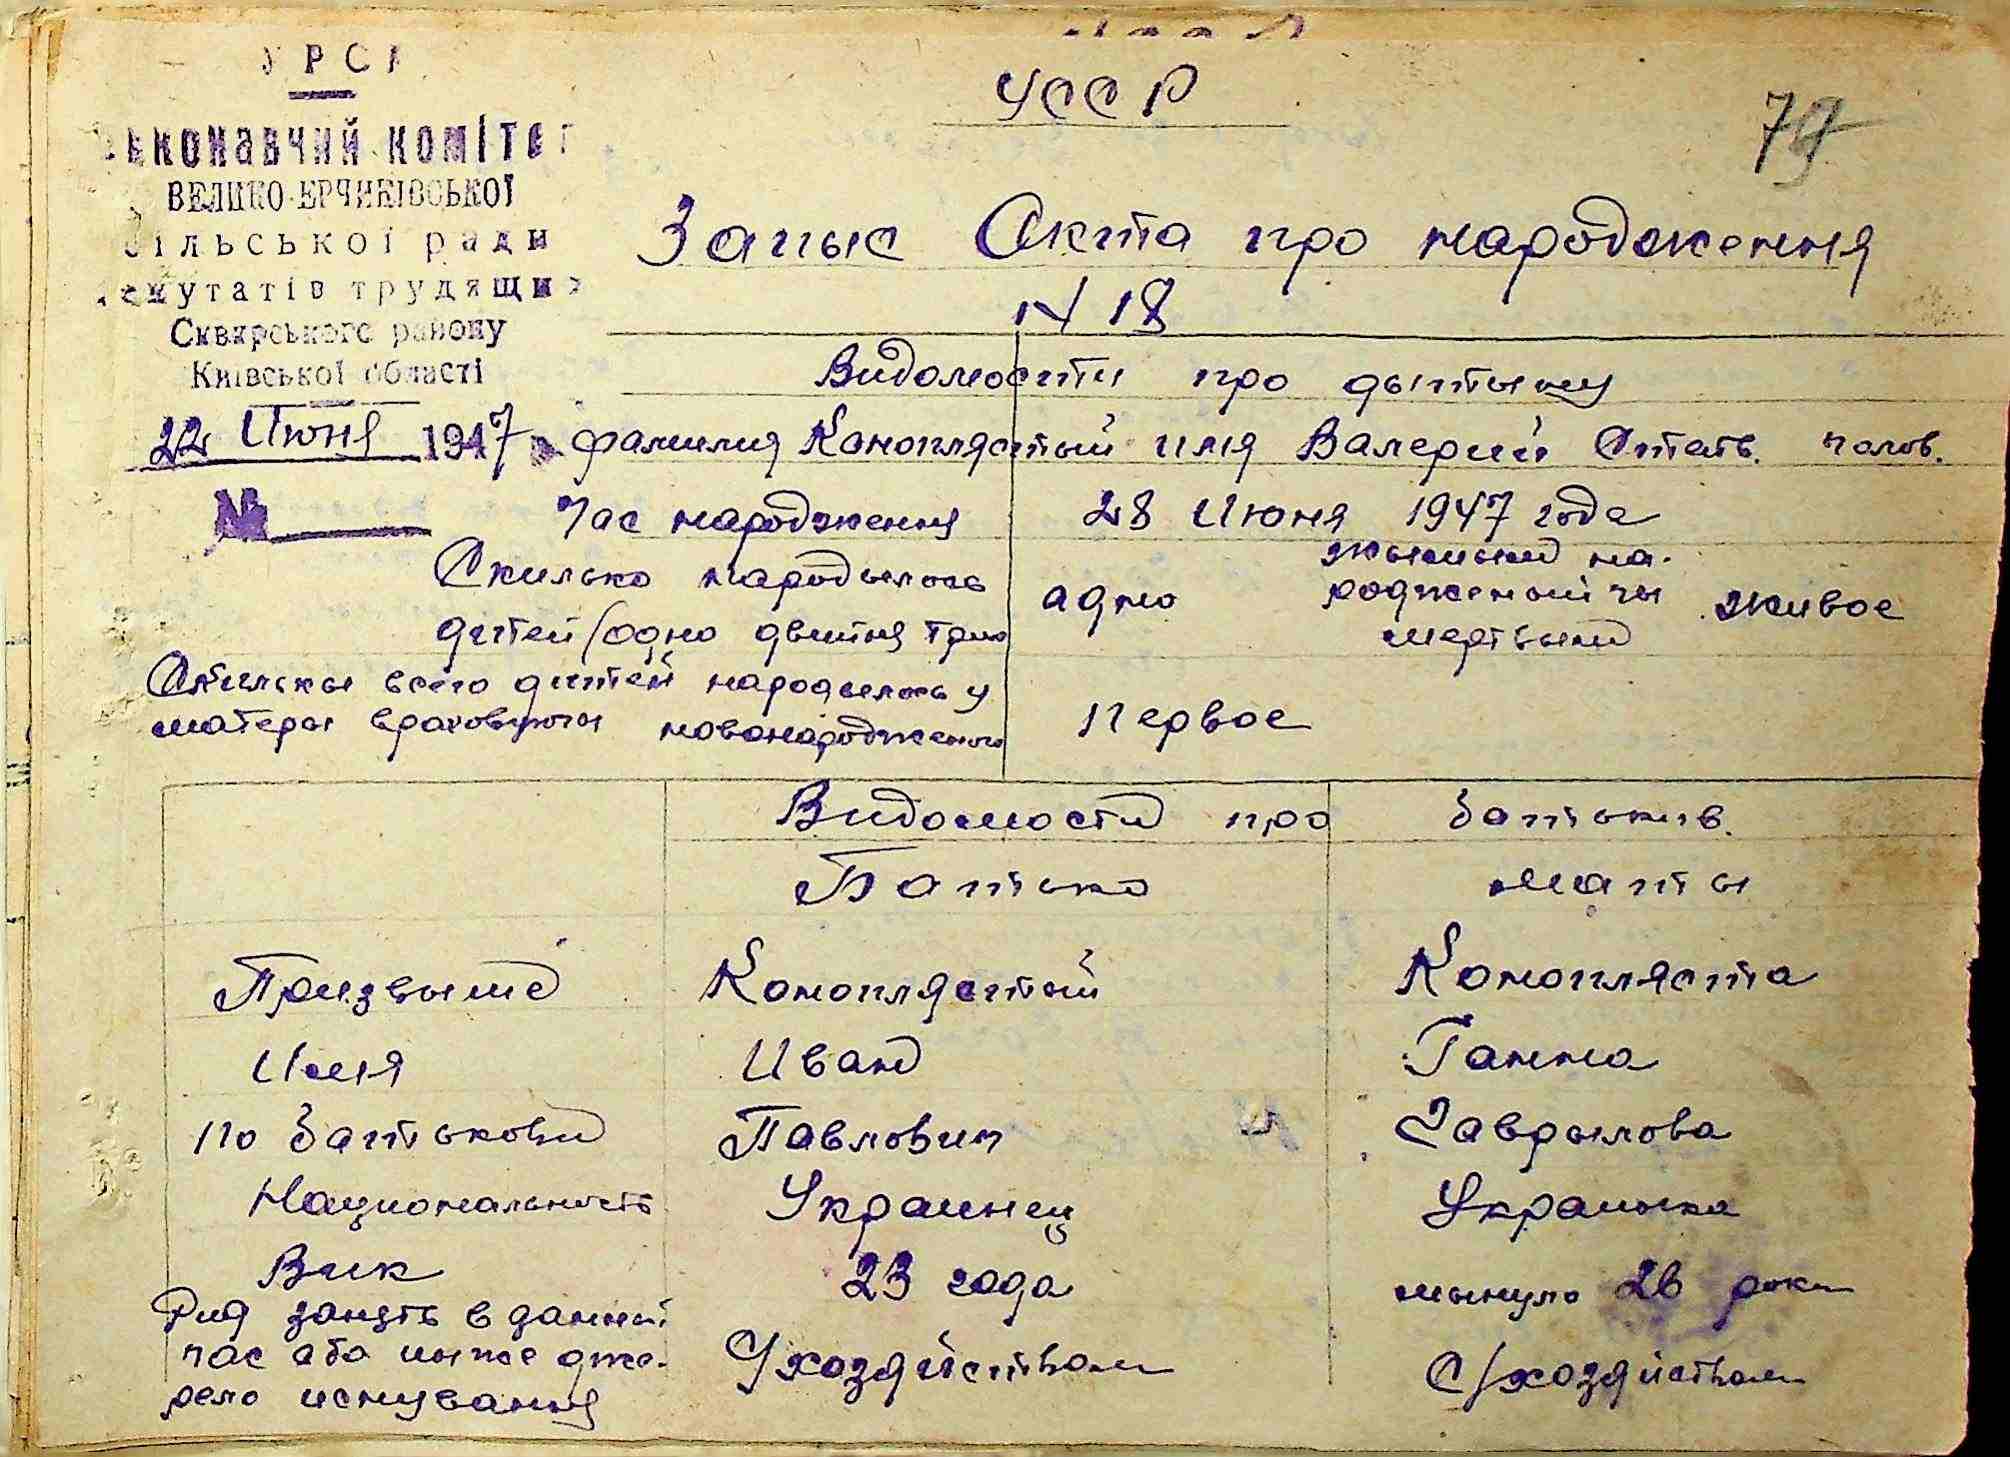 УРСР
УССР
79
Виконавчий комітет
ВЕЛИКО-ЕРЧИКІВСЬКОЇ
сільської ради
депутатів трудящих
Сквирського району
Київської області
Запыс Акта про народження
N 18
Видомости про дытыну
22 Июня 1947 р. фамилия Коноплястый имя Валерий Стать. полов.
№
Час народження 28 Июня 1947 года
Скилько народылось дитей (одно двийня трий одно жывый народженый чы мертвый живое
Скилькы всего дитей народылось у матеры враховуючы новонародженого первое
Видомости про батькив.
Батько Маты
Призвыще Коноплястый Конопляста
Имя Иван Ганна
по батькови Павлович Гаврылова
Национальность Украинец Украинка
Вик 23 года мынуло 26 роки
Рид занять в данный час або инше джерело иснування С/хоздйством С/хоздйством